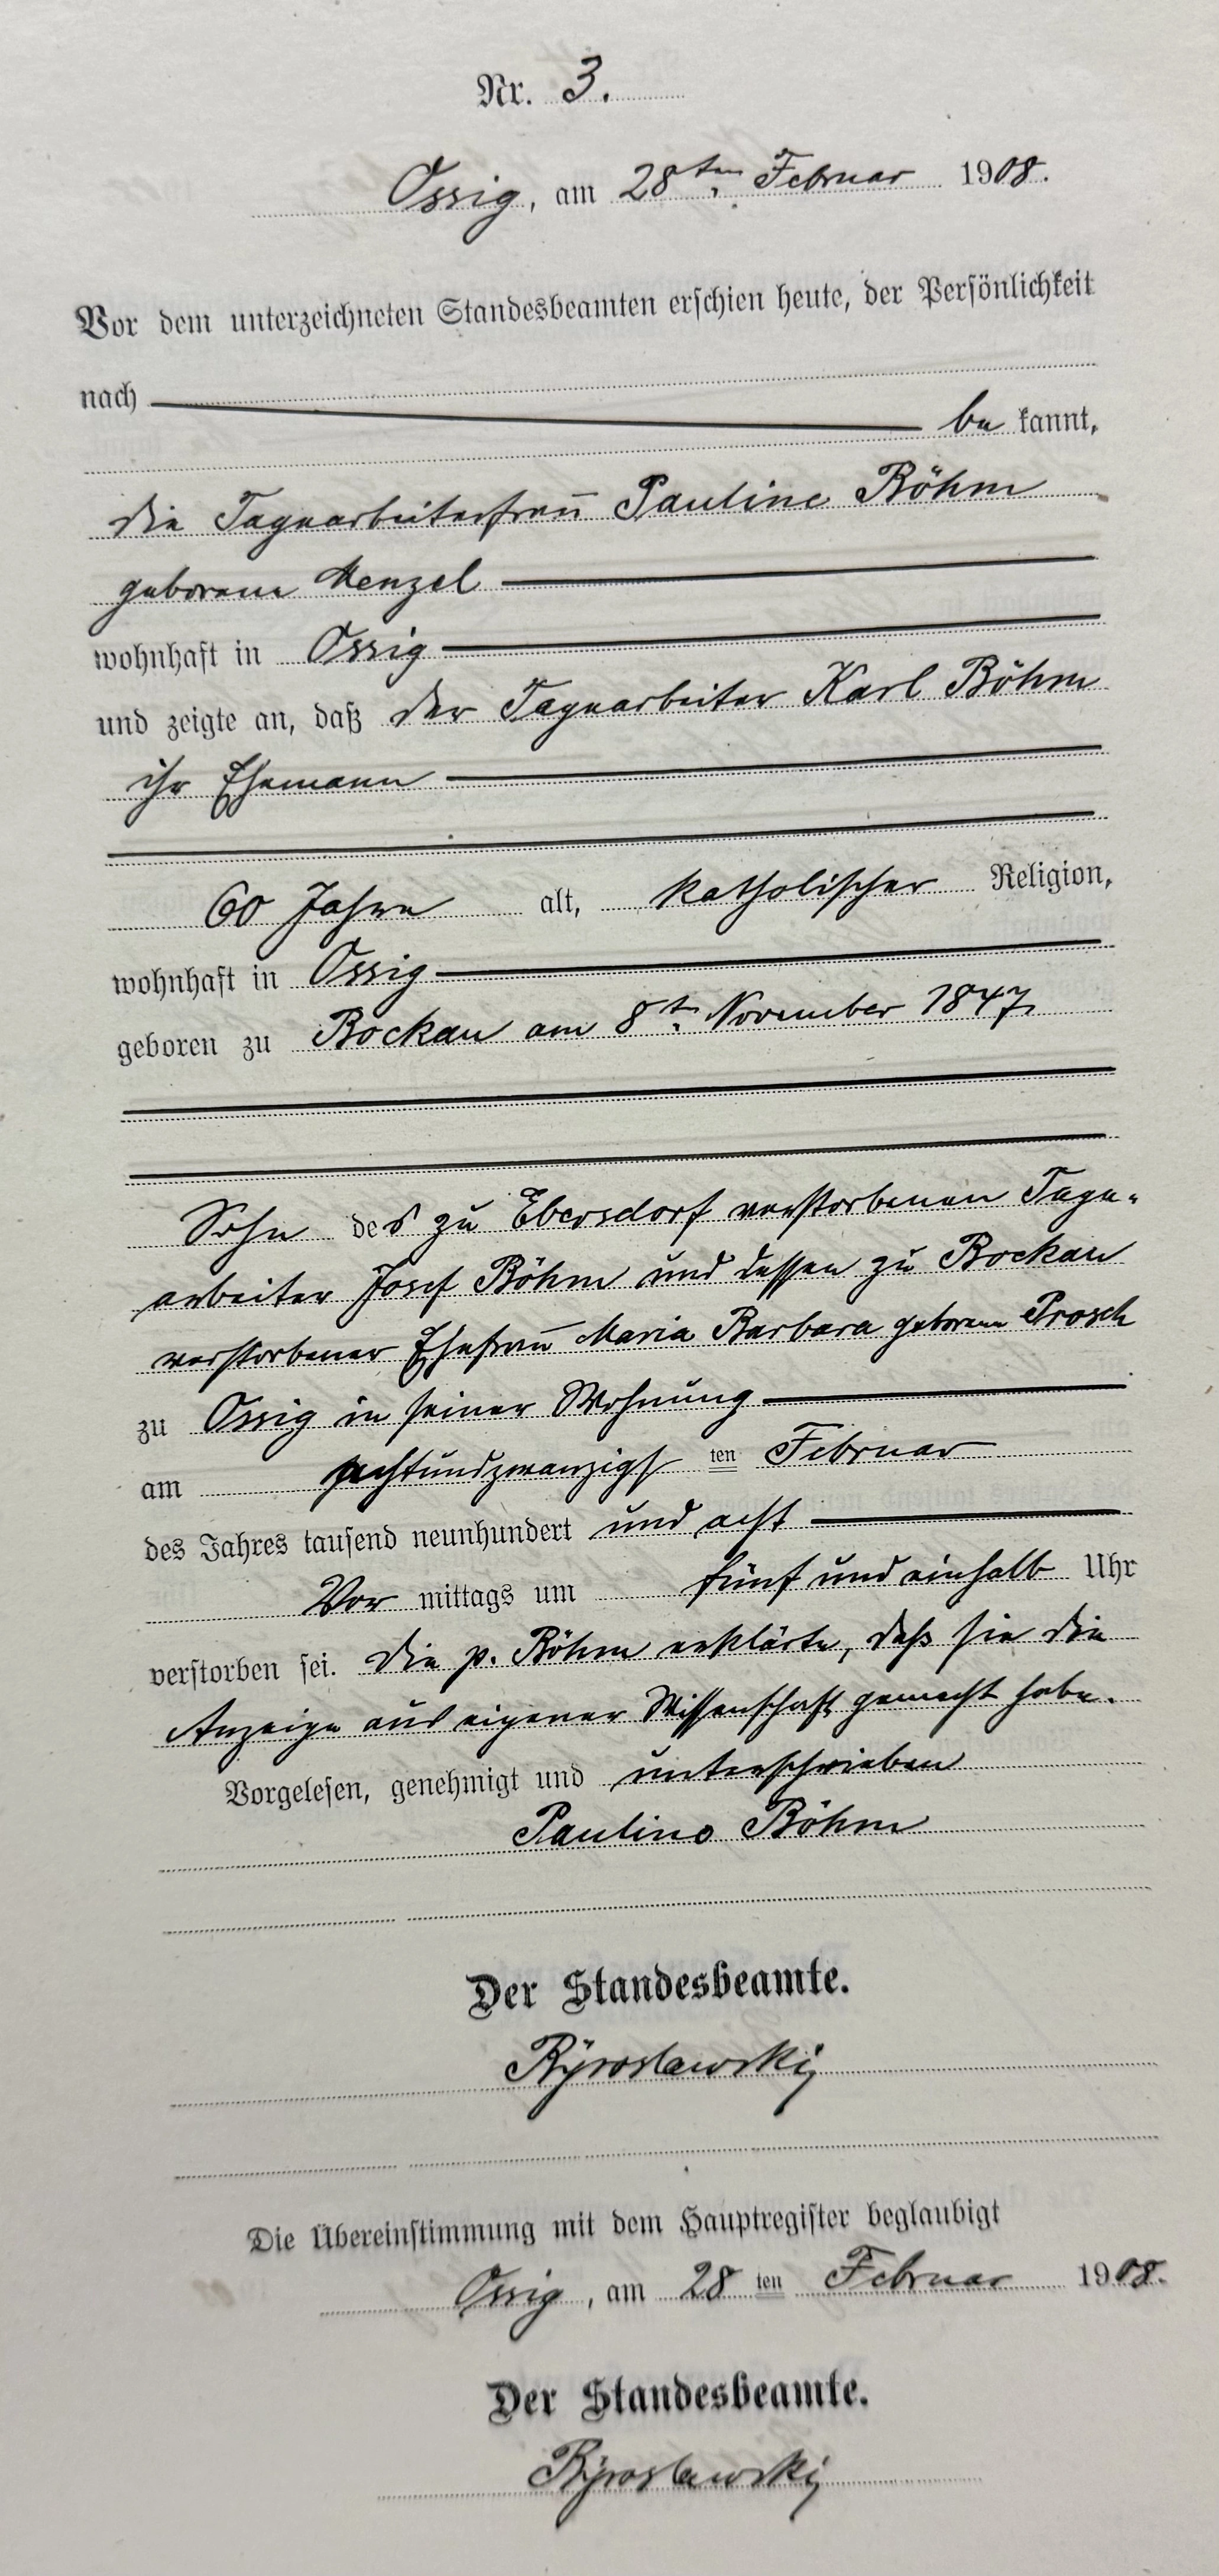 Nr. 3.
Ossig, am 28ten Februar 1908.
Vor dem unterzeichneten Standesbeamten erschien heute, der Persönlichkeit
nach
be kannt,
die Tagearbeiterfrau Pauline Böhm
geborene Menzel
wohnhaft in Ossig
und zeigte an, daß der Tagearbeiter Karl Böhm
ihr Ehemann
60 Jahre alt, katholischer Religion,
wohnhaft in Ossig
geboren zu Bockau am 8t. November 1847,
Sohn des zu Ebersdorf verstorbenen Tage-
arbeiter Josef Böhm und dessen zu Bockau
verstorbener Ehefrau Maria Barbara geborene Prosch
zu Ossig in seiner Wohnung
am achtundzwanzigs ten Februar
des Jahres tausend neunhundert und acht
Vor mittags um fünf und einhalb Uhr
verstorben sei. Die p. Böhm erklärte, daß sie die
Anzeige aus eigener Wissenschaft gemacht habe.
Vorgelesen, genehmigt und unterschrieben
Pauline Böhm
Der Standesbeamte.
Die Übereinstimmung mit dem Hauptregister beglaubigt
Ossig, am 28 ten Februar 1908.
Der Standesbeamte.